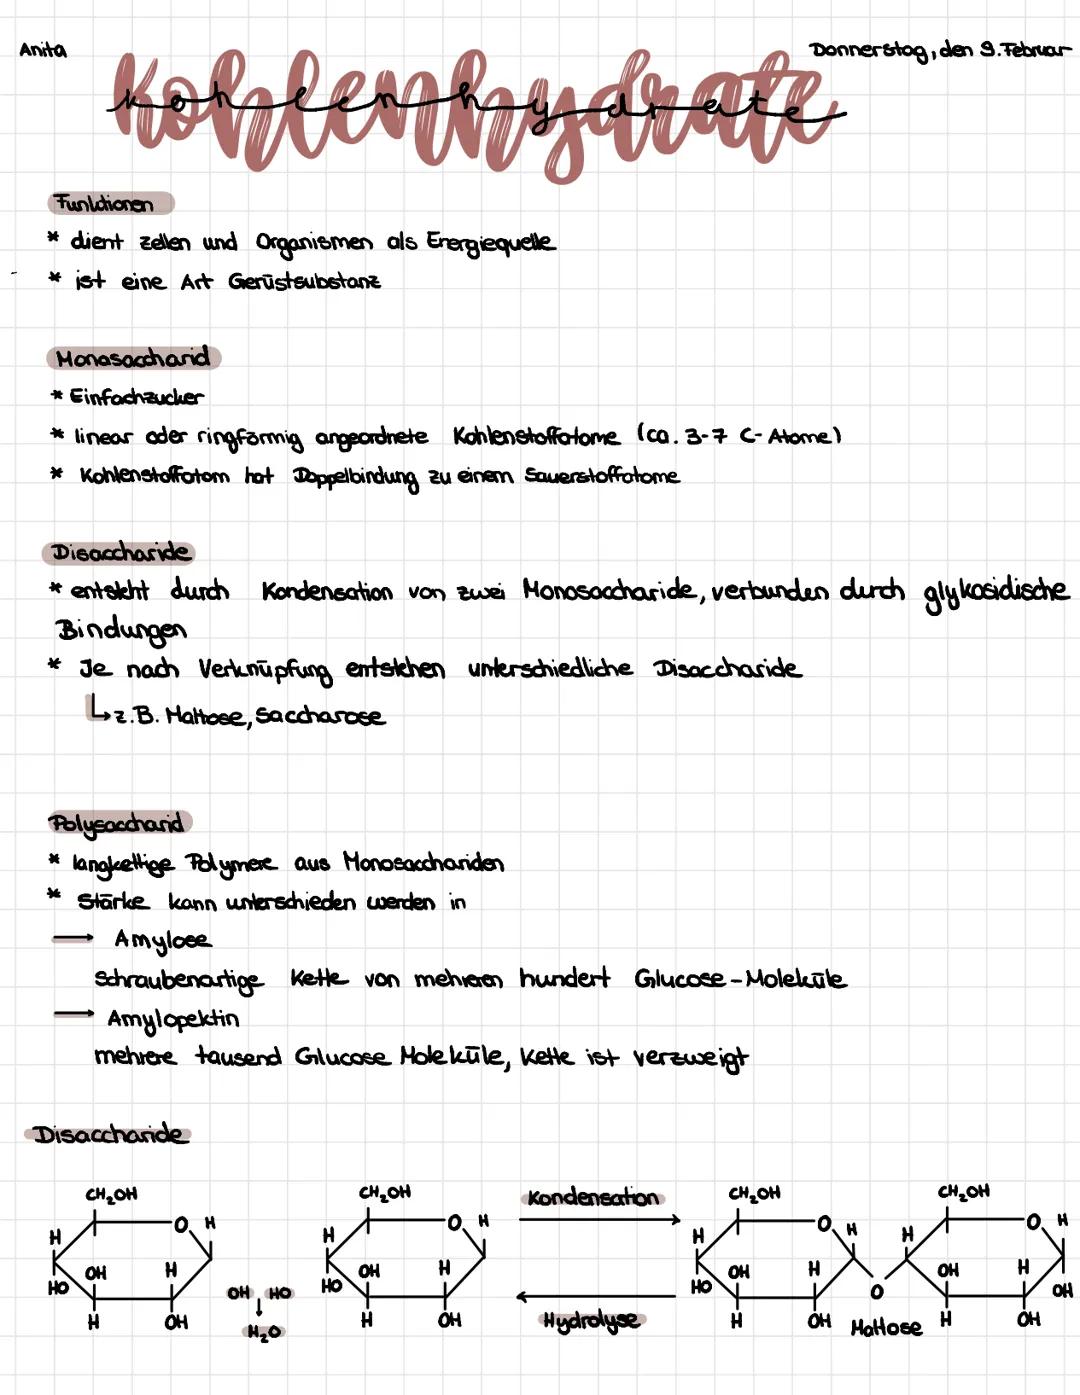 Anita
Donnerstag, den 9. Februar
Kohlenhydrate
kohlenhydrate
Funktionen
* dient Zellen und Organismen als Energiequelle
* ist eine Art Gerüstsubstanz
Monosaccharid
* Einfachzucker
* linear oder ringförmig angeordnete Kohlenstoffatome (ca. 3-7 C-Atome)
* Kohlenstoffatom hat Doppelbindung zu einem Sauerstoffatome
Disaccharide
* entsteht durch Kondensation von zwei Monosaccharide, verbunden durch glykosidische
Bindungen
* Je nach Verknüpfung entstehen unterschiedliche Disaccharide
↳ z.B. Maltose, Saccharose
Polysaccharid
* langkettige Polymere aus Monosacchariden
* Stärke kann unterschieden werden in
→ Amylose
Schraubenartige Kette von mehreren hundert Glucose-Moleküle
→ Amylopektin
mehrere tausend Glucose Moleküle, Kette ist verzweigt
Disaccharide
CH₂OH CH₂OH Kondensation CH₂OH CH₂OH
H O H H O H H O H H O H
HO OH H HO OH H HO OH H OH H OH
OH HO O
H OH H OH Hydrolyse H OH H OH
H₂O Maltose